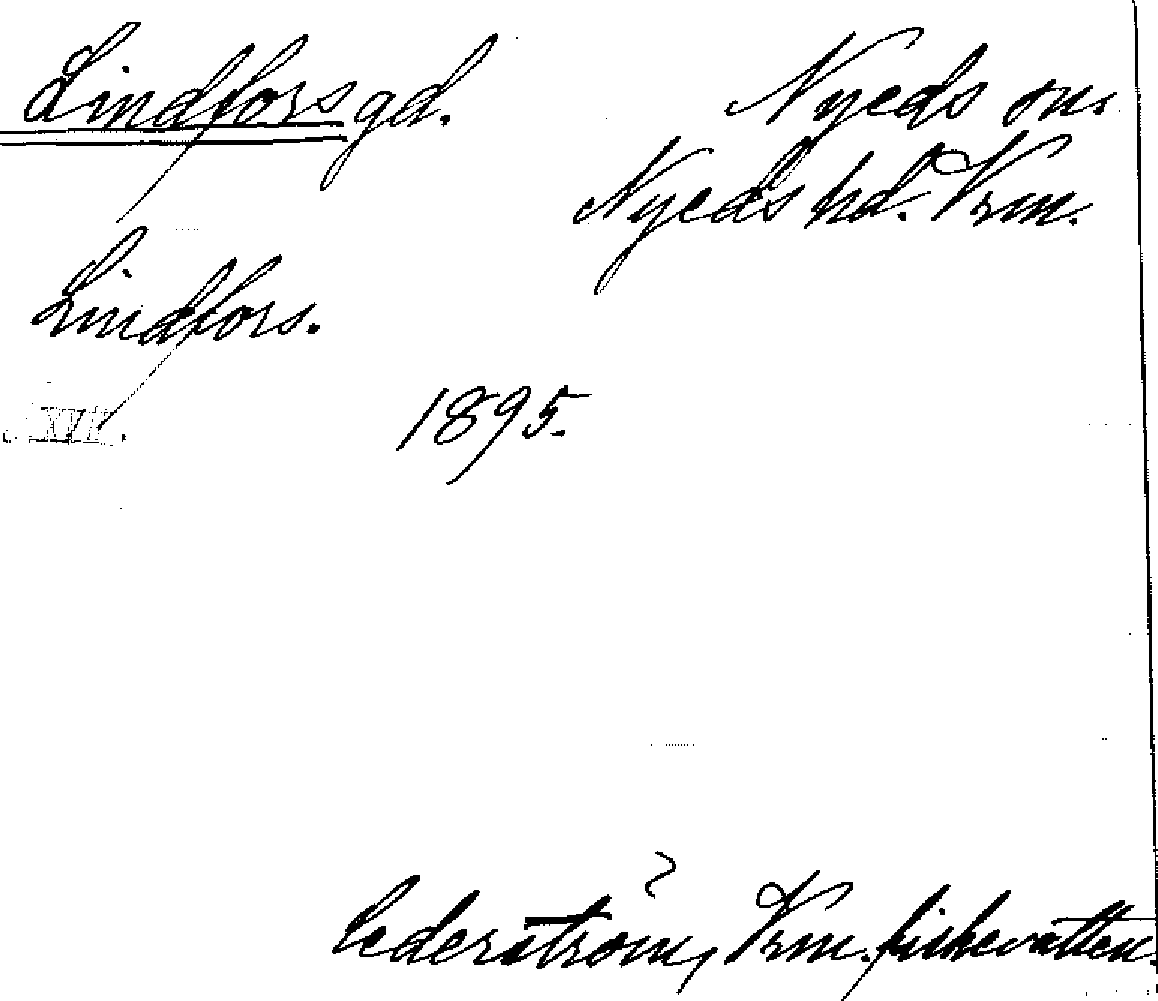 Lindfors gd. Nyeds sn.
Nyeds hd. Vrm.
Lindfors.
1895.
Cederström, Vrm. fiskevatten.